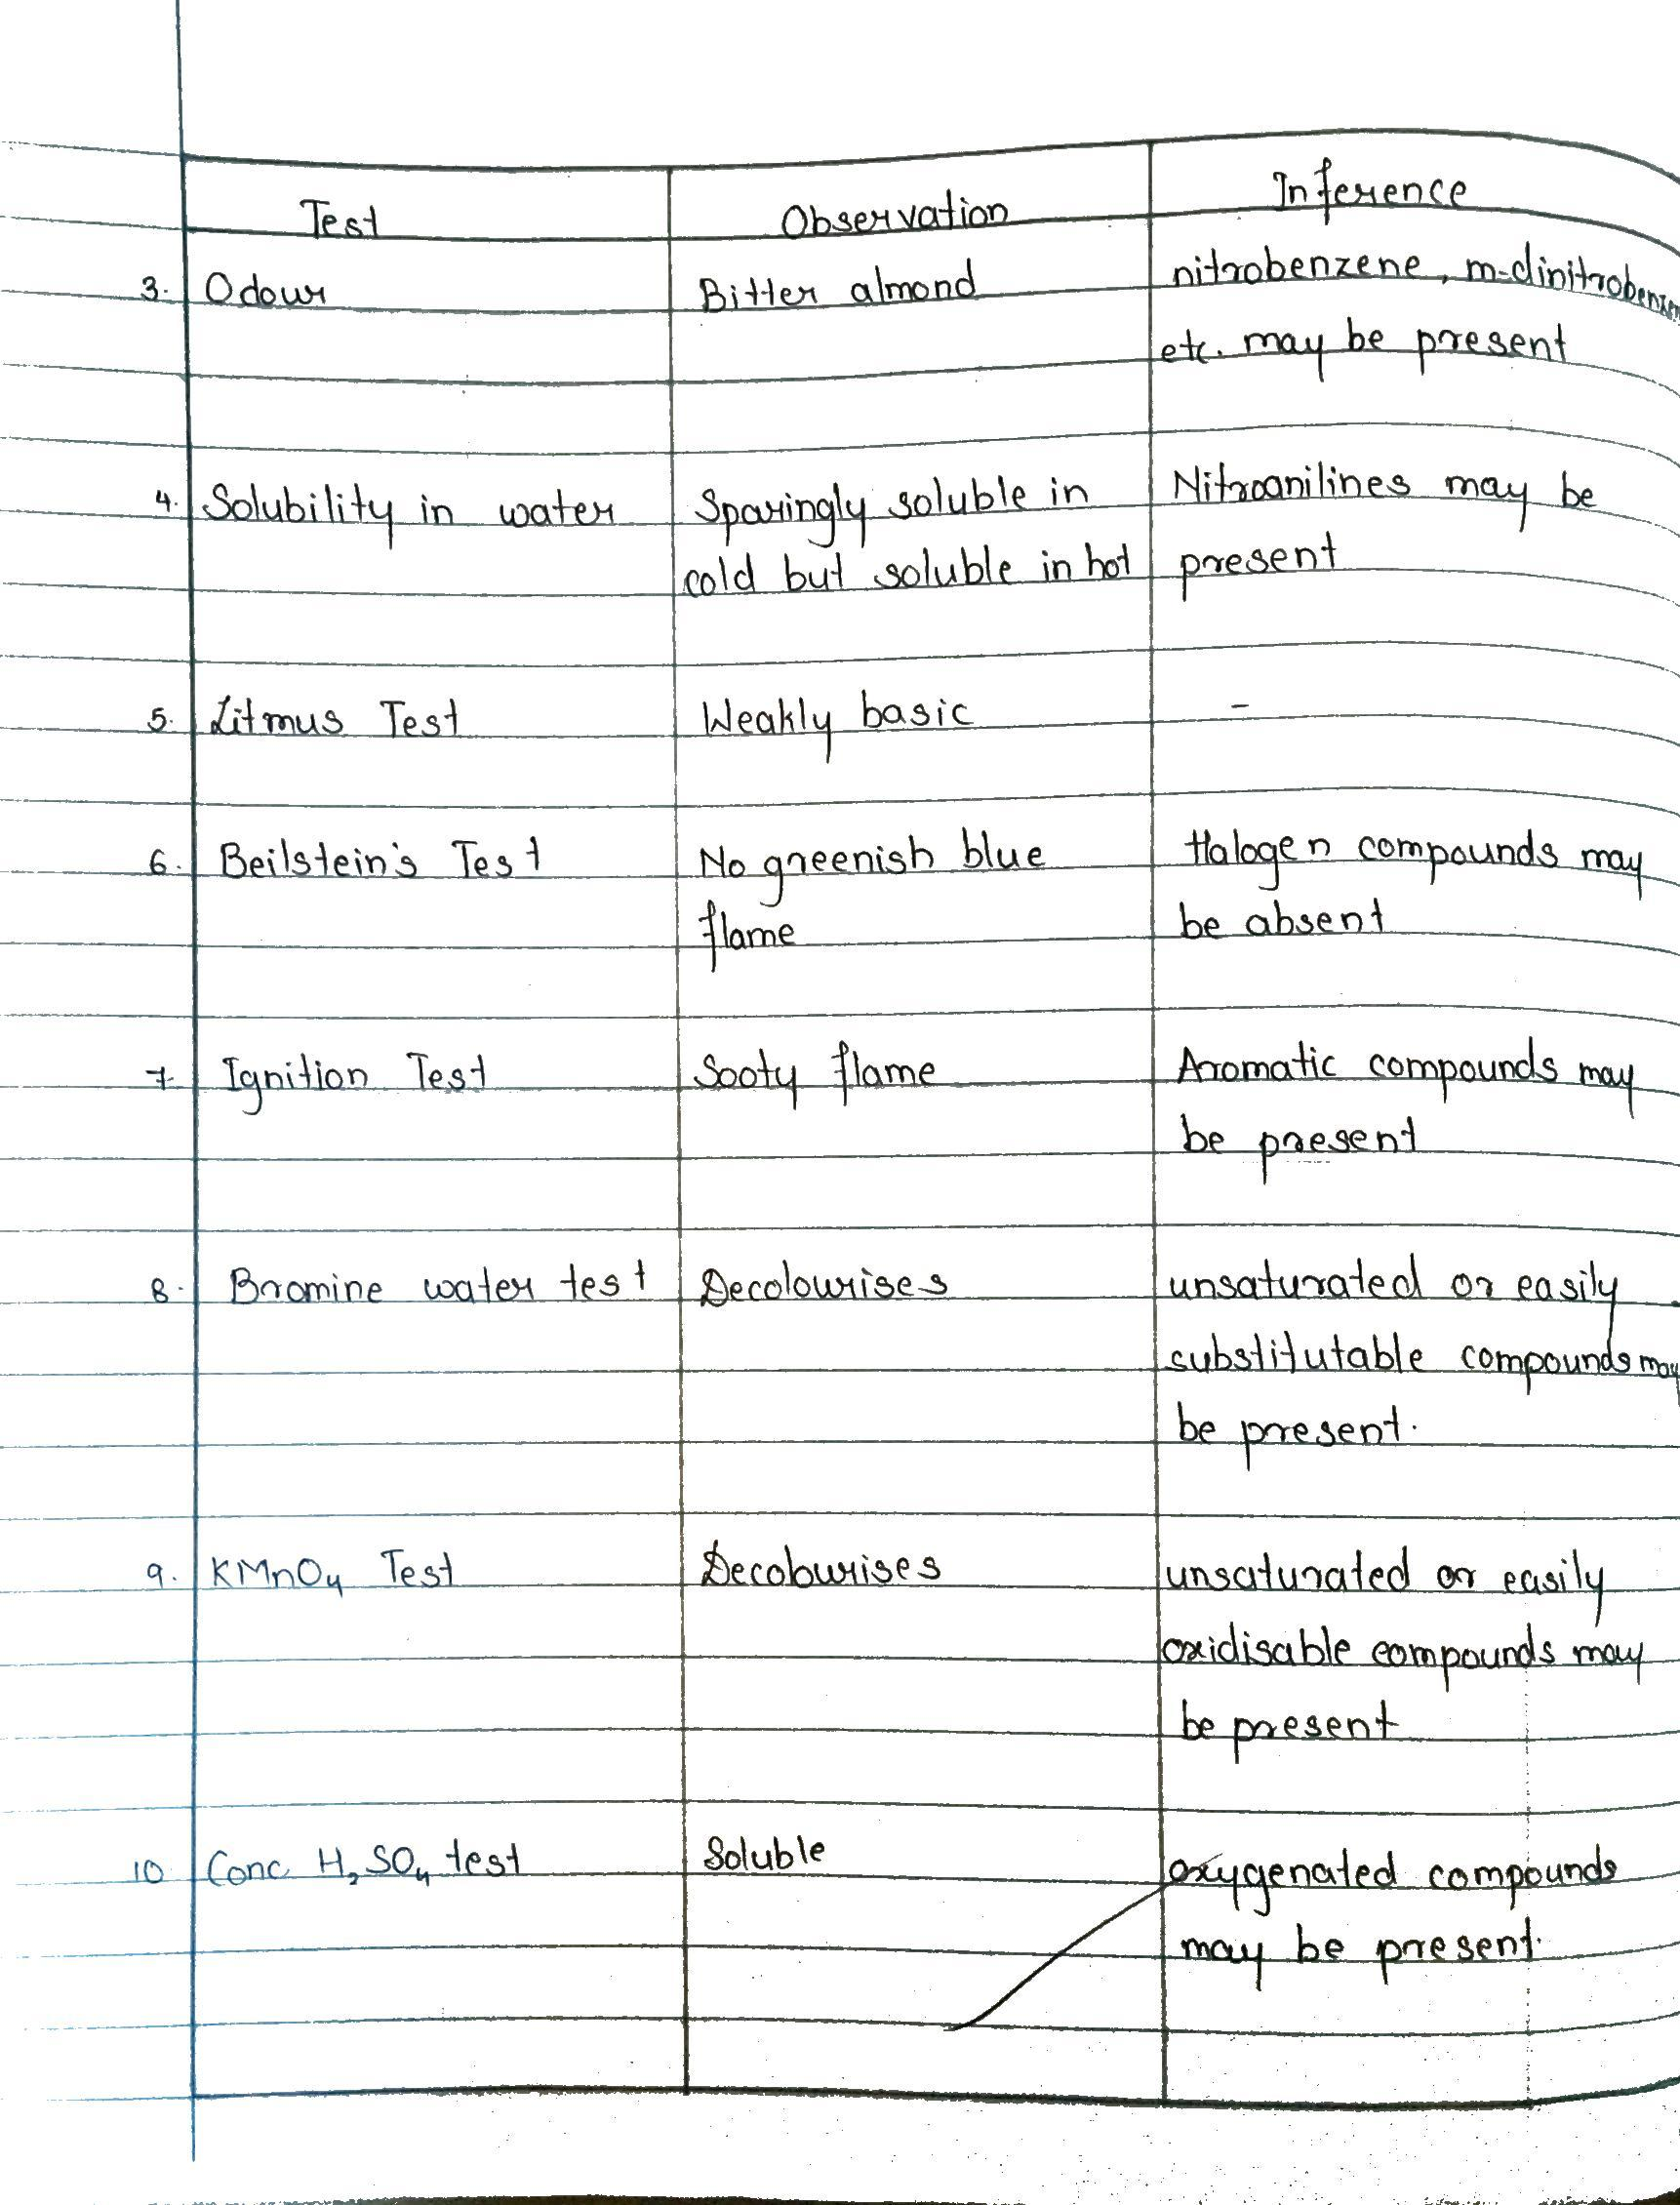 Test Observation Inference
3. Odour Bitter almond nitrobenzene, m-dinitrobenzen
etc. may be present
4. Solubility in water Sparingly soluble in Nitroanilines may be
cold but soluble in hot present
5. Litmus Test Weakly basic -
6. Beilstein's Test No greenish blue Halogen compounds may
flame be absent
7. Ignition Test Sooty flame Aromatic compounds may
be present
8. Bromine water test Decolourises unsaturated or easily
substitutable compounds may
be present.
9. KMnO₄ Test Decolourises unsaturated or easily
oxidisable compounds may
be present
10 Conc H₂SO₄ test Soluble oxygenated compounds
may be present.